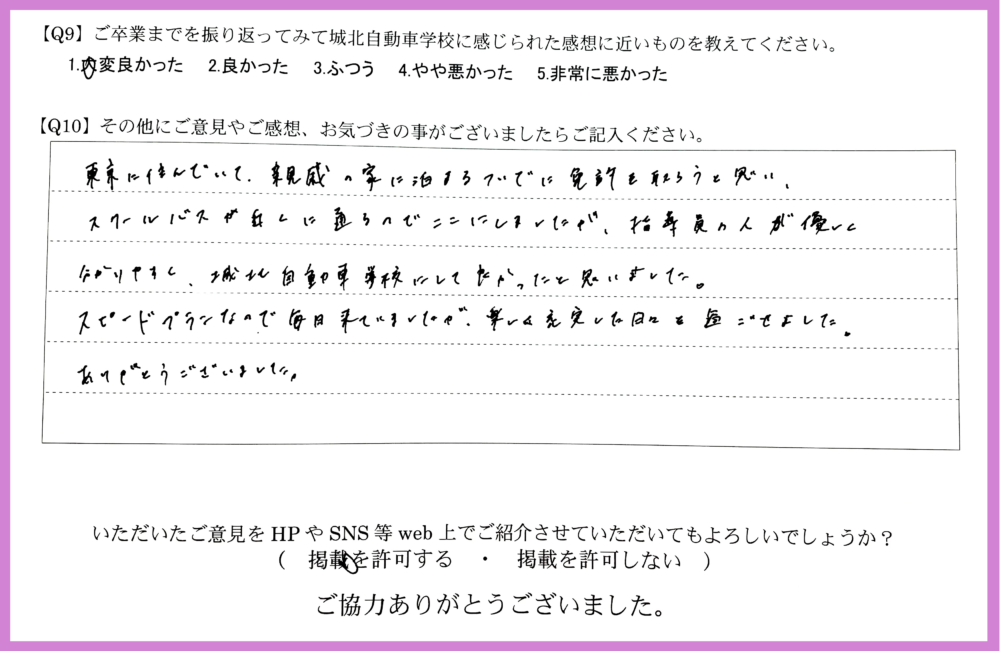 【Q9】ご卒業までを振り返ってみて城北自動車学校に感じられた感想に近いものを教えてください。
1.大変良かった 2.良かった 3.ふつう 4.やや悪かった 5.非常に悪かった
【Q10】その他にご意見やご感想、お気づきの事がございましたらご記入ください。
東京に住んでいて、親戚の家に泊まるついでに免許を取ろうと思い、
スクールバスが近くに通るのでここにしましたが、指導員の人が優しく
分かりやすく、城北自動車学校にして良かったと思いました。
スピードプランなので毎日来ていましたが、楽しく充実した日々を過ごせました。
ありがとうございました。
いただいたご意見をHPやSNS等web上でご紹介させていただいてもよろしいでしょうか？
( 掲載を許可する ・ 掲載を許可しない )
ご協力ありがとうございました。